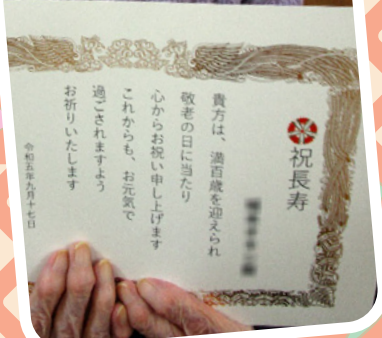 祝長寿
貴方は、満百歳を迎えられ
敬老の日に当たり
心からお祝い申し上げます
これからも、お元気で
過ごされますよう
お祈りいたします
令和五年九月十七日